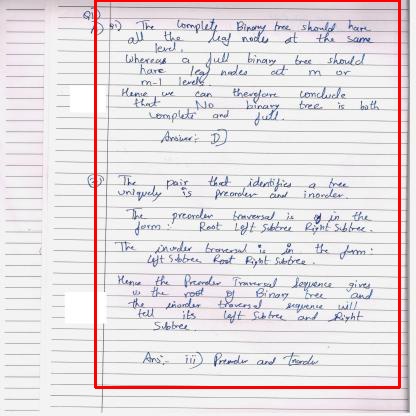 Q1)
1) i) The Complete Binary tree should have
all the leaf nodes at the same
level.
Whereas a full binary tree should
have leaf nodes at m or
m-1 levels
Hence we can therefore conclude
that No binary tree is both
complete and full.
Answer:- D]
2) The pair that identifies a tree
uniquely is preorder and inorder.
The preorder traversal is in the
form: Root Left Subtree Right Subtree.
The inorder traversal is in the form:
Left Subtree Root Right Subtree.
Hence the Preorder Traversal Sequence gives
us the root of Binary tree and
the inorder traversal sequence will
tell its Left Subtree and Right
Subtree
Ans:- iii) Preorder and Inorder